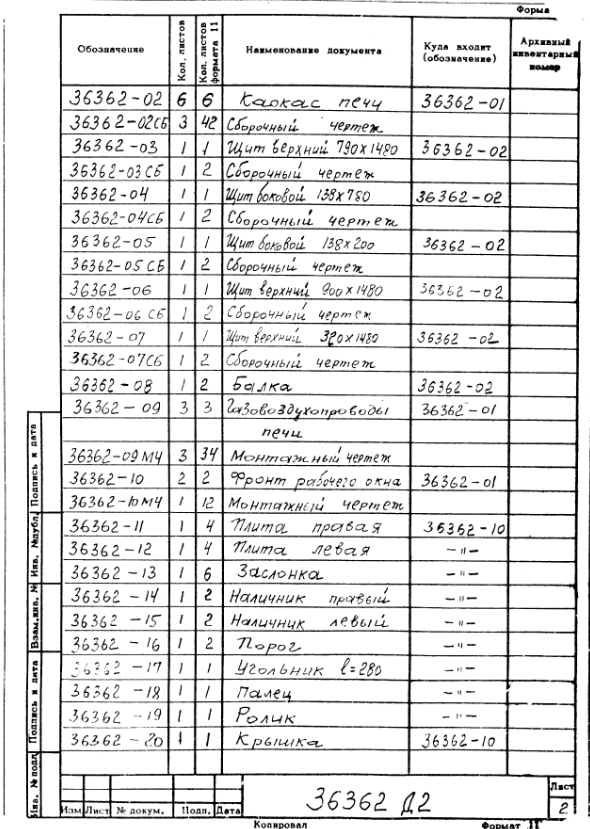 Форма
Обозначение Кол. листов Кол. листов формата 11 Наименование документа Куда входит (обозначение) Архивный инвентарный номер
36362-02 6 6 Каркас печи 36362-01
36362-02СБ 3 42 Сборочный чертеж
36362-03 1 1 Щит верхний 790х1480 36362-02
36362-03СБ 1 2 Сборочный чертеж
36362-04 1 1 Щит боковой 138х780 36362-02
36362-04СБ 1 2 Сборочный чертеж
36362-05 1 1 Щит боковой 138х200 36362-02
36362-05СБ 1 2 Сборочный чертеж
36362-06 1 1 Щит верхний 900х1480 36362-02
36362-06СБ 1 2 Сборочный чертеж
36362-07 1 1 Щит верхний 320х1480 36362-02
36362-07СБ 1 2 Сборочный чертеж
36362-08 1 2 Балка 36362-02
36362-09 3 3 Газовоздухопроводы 36362-01
печи
36362-09МЧ 3 34 Монтажный чертеж
36362-10 2 2 Фронт рабочего окна 36362-01
36362-10МЧ 1 12 Монтажный чертеж
36362-11 1 4 Плита правая 36362-10
36362-12 1 4 Плита левая —"—
36362-13 1 6 Заслонка —"—
36362-14 1 2 Наличник правый —"—
36362-15 1 2 Наличник левый —"—
36362-16 1 2 Порог —"—
36362-17 1 1 Угольник ℓ=280 —"—
36362-18 1 1 Палец —"—
36362-19 1 1 Ролик —"—
36362-20 1 1 Крышка 36362-10
Инв. № подл. Подпись и дата Взам.инв. № Инв. №дубл. Подпись и дата
Изм Лист № докум. Подп. Дата
36362 Д2
Лист
2
Копировал Формат 11